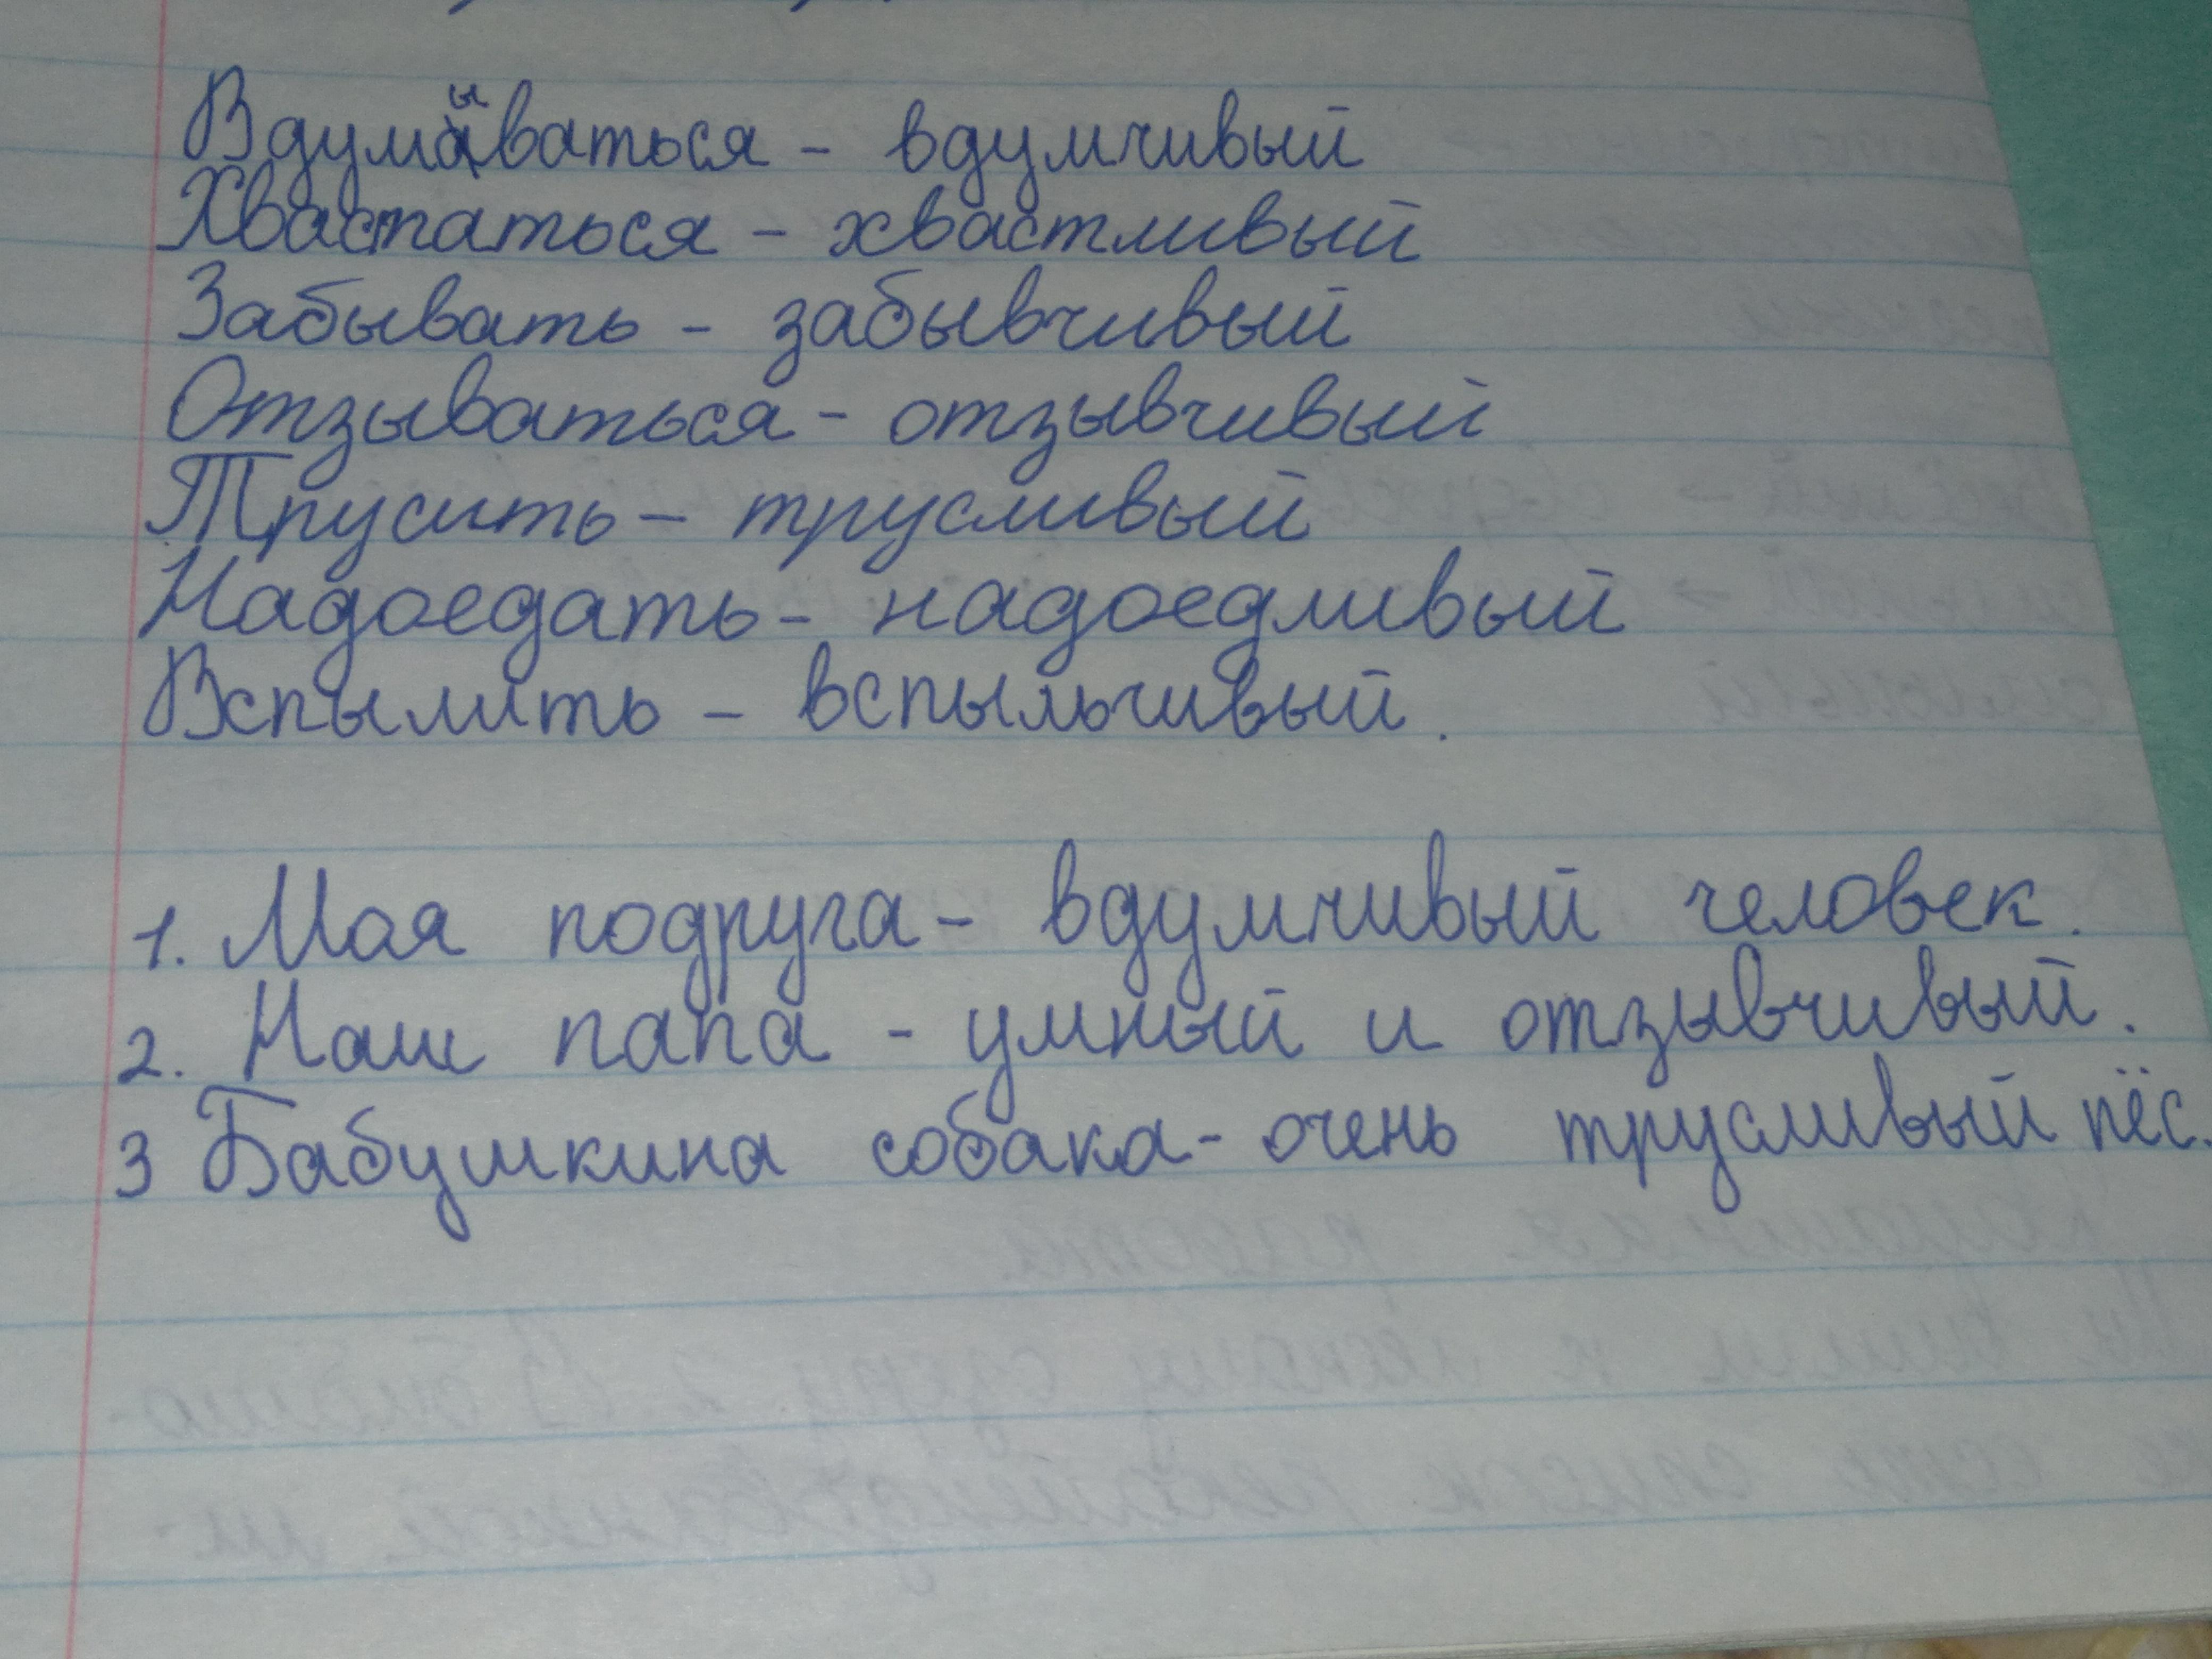 Вдумываться - вдумчивый
Хвастаться - хвастливый
Забывать - забывчивый
Отзываться - отзывчивый
Трусить - трусливый
Надоедать - надоедливый
Вспылить - вспыльчивый.
1. Моя подруга - вдумчивый человек.
2. Наш папа - умный и отзывчивый.
3 Бабушкина собака - очень трусливый пёс.